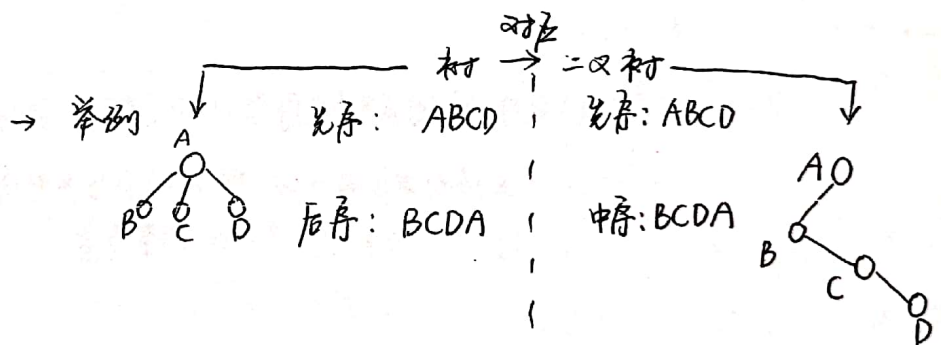 对应
树 → 二叉树
→ 举例 先序: ABCD 先序: ABCD
A
B C D
后序: BCDA 中序: BCDA
A
B
C
D